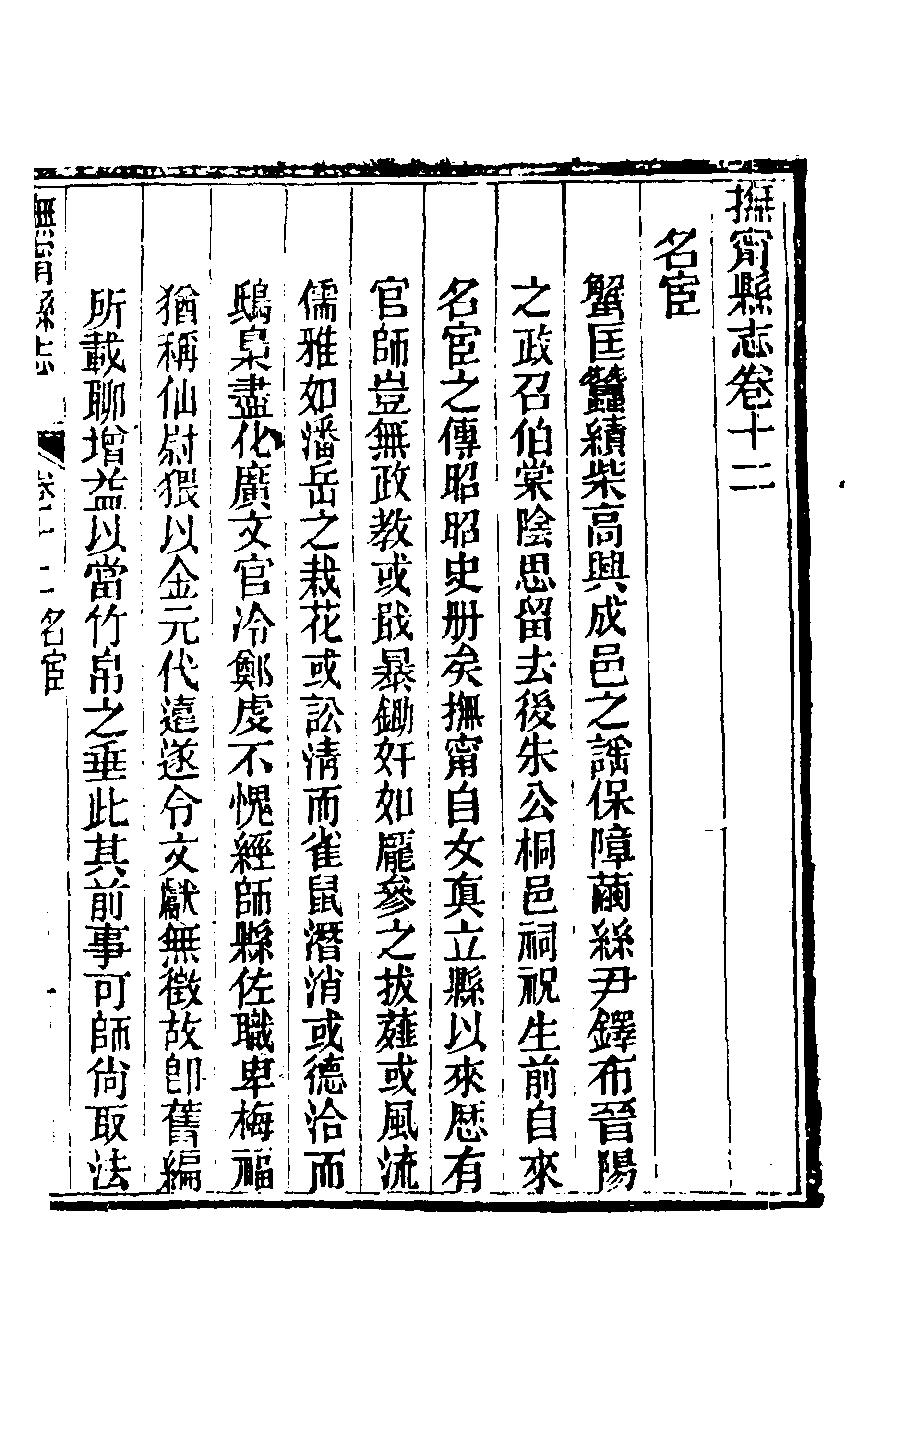 撫甯縣志卷十二
名宦
蟹匡蠶績柴高興成邑之謠保障繭絲尹鐸布晉陽
之政召伯棠陰思留去後朱公桐邑祠祝生前自來
名宦之傳昭昭史册矣撫甯自女真立縣以來歴有
官師豈無政教或戢暴鋤奸如龐參之拔薤或風流
儒雅如潘岳之栽花或訟清而雀鼠潛消或德洽而
鴟梟盡化廣文官冷鄭虔不愧經師縣佐職卑梅福
猶稱仙尉猥以金元代遠遂令文獻無徵故卽舊編
所載聊增益以當竹帛之垂此其前事可師尙取法
撫甯縣志
卷十二名宦